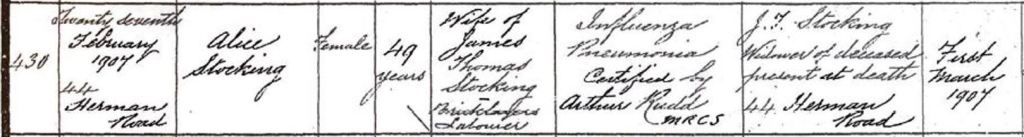 430
Twenty seventh
February
1907
44
Herman
Road
Alice
Stocking
Female
49
years
Wife of
James
Thomas
Stocking
Bricklayers
Labourer
Influenza
Pneumonia
Certified by
Arthur Rudd
MRCS
J. T. Stocking
Widower of deceased
present at death
44 Herman
Road
First
March
1907